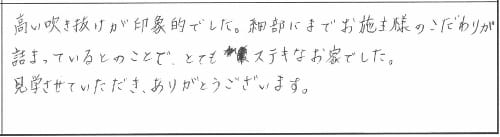 高い吹き抜けが印象的でした。細部にまでお施主様のこだわりが
詰まっているとのことで、とてもステキなお家でした。
見学させていただき、ありがとうございます。